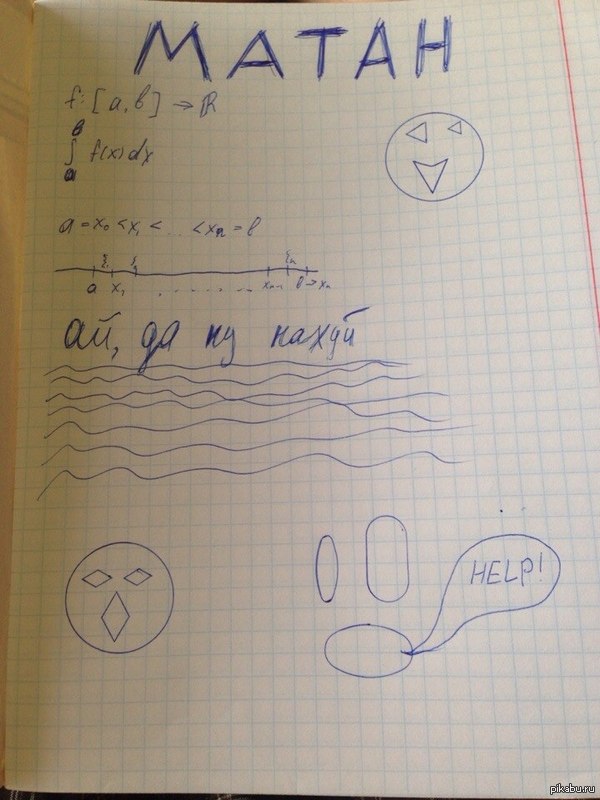 МАТАН
f: [a, b] → ℝ
b
∫ f(x) dx
a
a = x₀ < x₁ < ... < xₙ = b
ξ₁ ξₙ
a x₁ . . . . . . . xₙ₋₁ b → xₙ
ай, да ну нахуй
HELP!
pikabu.ru